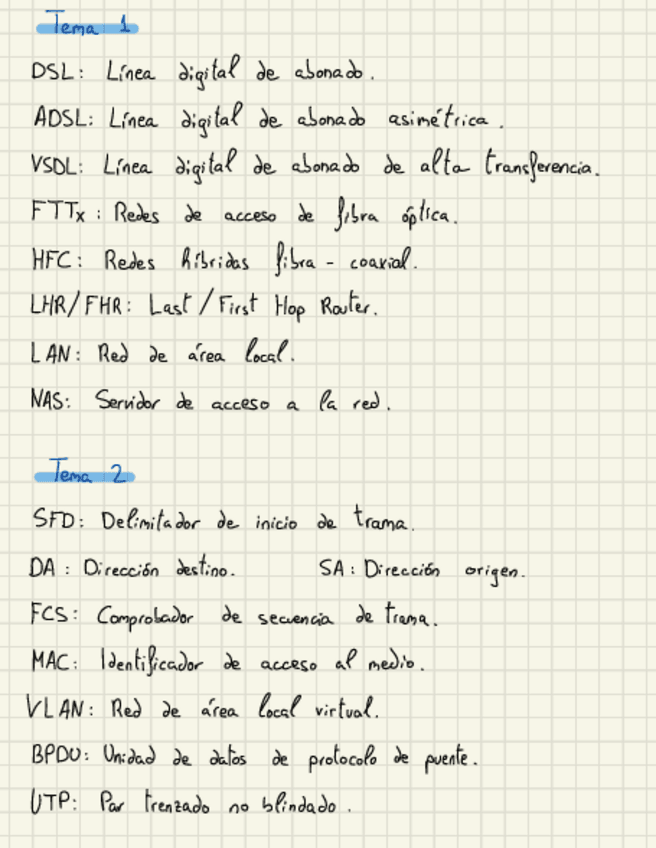 Tema 1
DSL: Línea digital de abonado.
ADSL: Línea digital de abonado asimétrica.
VSDL: Línea digital de abonado de alta transferencia.
FTTx: Redes de acceso de fibra óptica.
HFC: Redes híbridas fibra - coaxial.
LHR/FHR: Last/First Hop Router.
LAN: Red de área local.
NAS: Servidor de acceso a la red.
Tema 2
SFD: Delimitador de inicio de trama.
DA: Dirección destino. SA: Dirección origen.
FCS: Comprobador de secuencia de trama.
MAC: Identificador de acceso al medio.
VLAN: Red de área local virtual.
BPDU: Unidad de datos de protocolo de puente.
UTP: Par trenzado no blindado.